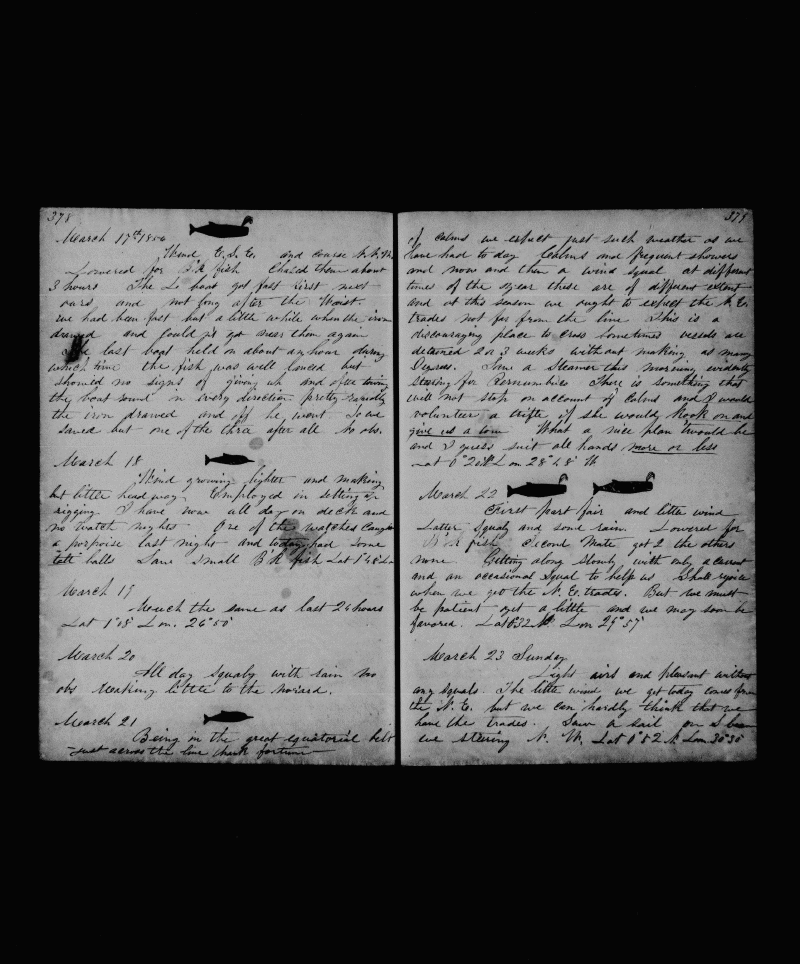 378
March 17th 1856
Wind E.S.E. and course N.N.W.
Lowered for B'k fish Chased them about
3 hours The La boat got fast first next
ours, and not long after the Waist.
we had been fast but a little while when the iron
drawed and could not get near them again
The last boat held on about an hour during
which time the fish was well lanced but
showed no signs of giving up and after towing
the boat round in every direction pretty rapidly
the iron drawed and off he went So we
saved but one of the three after all No obs.
March 18
Wind growing lighter and making
but little headway. Employed in setting up
rigging. I have now all day on deck and
no watch nights One of the watches caught
a porpoise last night and today had some
balls Saw small B'k fish Lat 1°48' Lo
March 19
Mouch the same as last 24 hours
Lat 1°08' Lon. 26°50'
March 20
All day squaly with rain no
obs Making little to the norard.
March 21
Being in the great equatorial belt
just across the line thank fortune
379
of calms we expect just such weather as we
have had to day Calms and frequent showers
and now and then a wind squal at different
times of the year these are of different extent
and at this season we ought to expect the N.E.
trades not far from the line This is a
discouraging place to cross sometimes vessels are
detained 2 or 3 weeks without making as many
Degrees. Saw a Steamer this morning evidently
steering for Pernumbico There is something that
will not stop on account of Calms and I would
volunteer a trifle if she would hook on and
give us a tow What a nice plan twould be
and I guess suit all hands more or less
Lat 0° Lon 28°48' W
March 22
First part fair and little wind
Latter Squaly and some rain. Lowered for
B'k fish Second Mate got 2 the others
none. Getting along slowly with only a current
and an occasional squal to help us Shall rejoice
when we get the N.E. trades. But we must
be patient yet a little and we may soon be
favored. Lat 0°32 N Lon 29°57'
March 23 Sunday
Light airs and pleasant without
any squals. The little wind we get today comes from
the N.E. but we can hardly think that we
have the trades. Saw a sail on L beam
we steering N.W. Lat 0°52 N Lon 30°35'